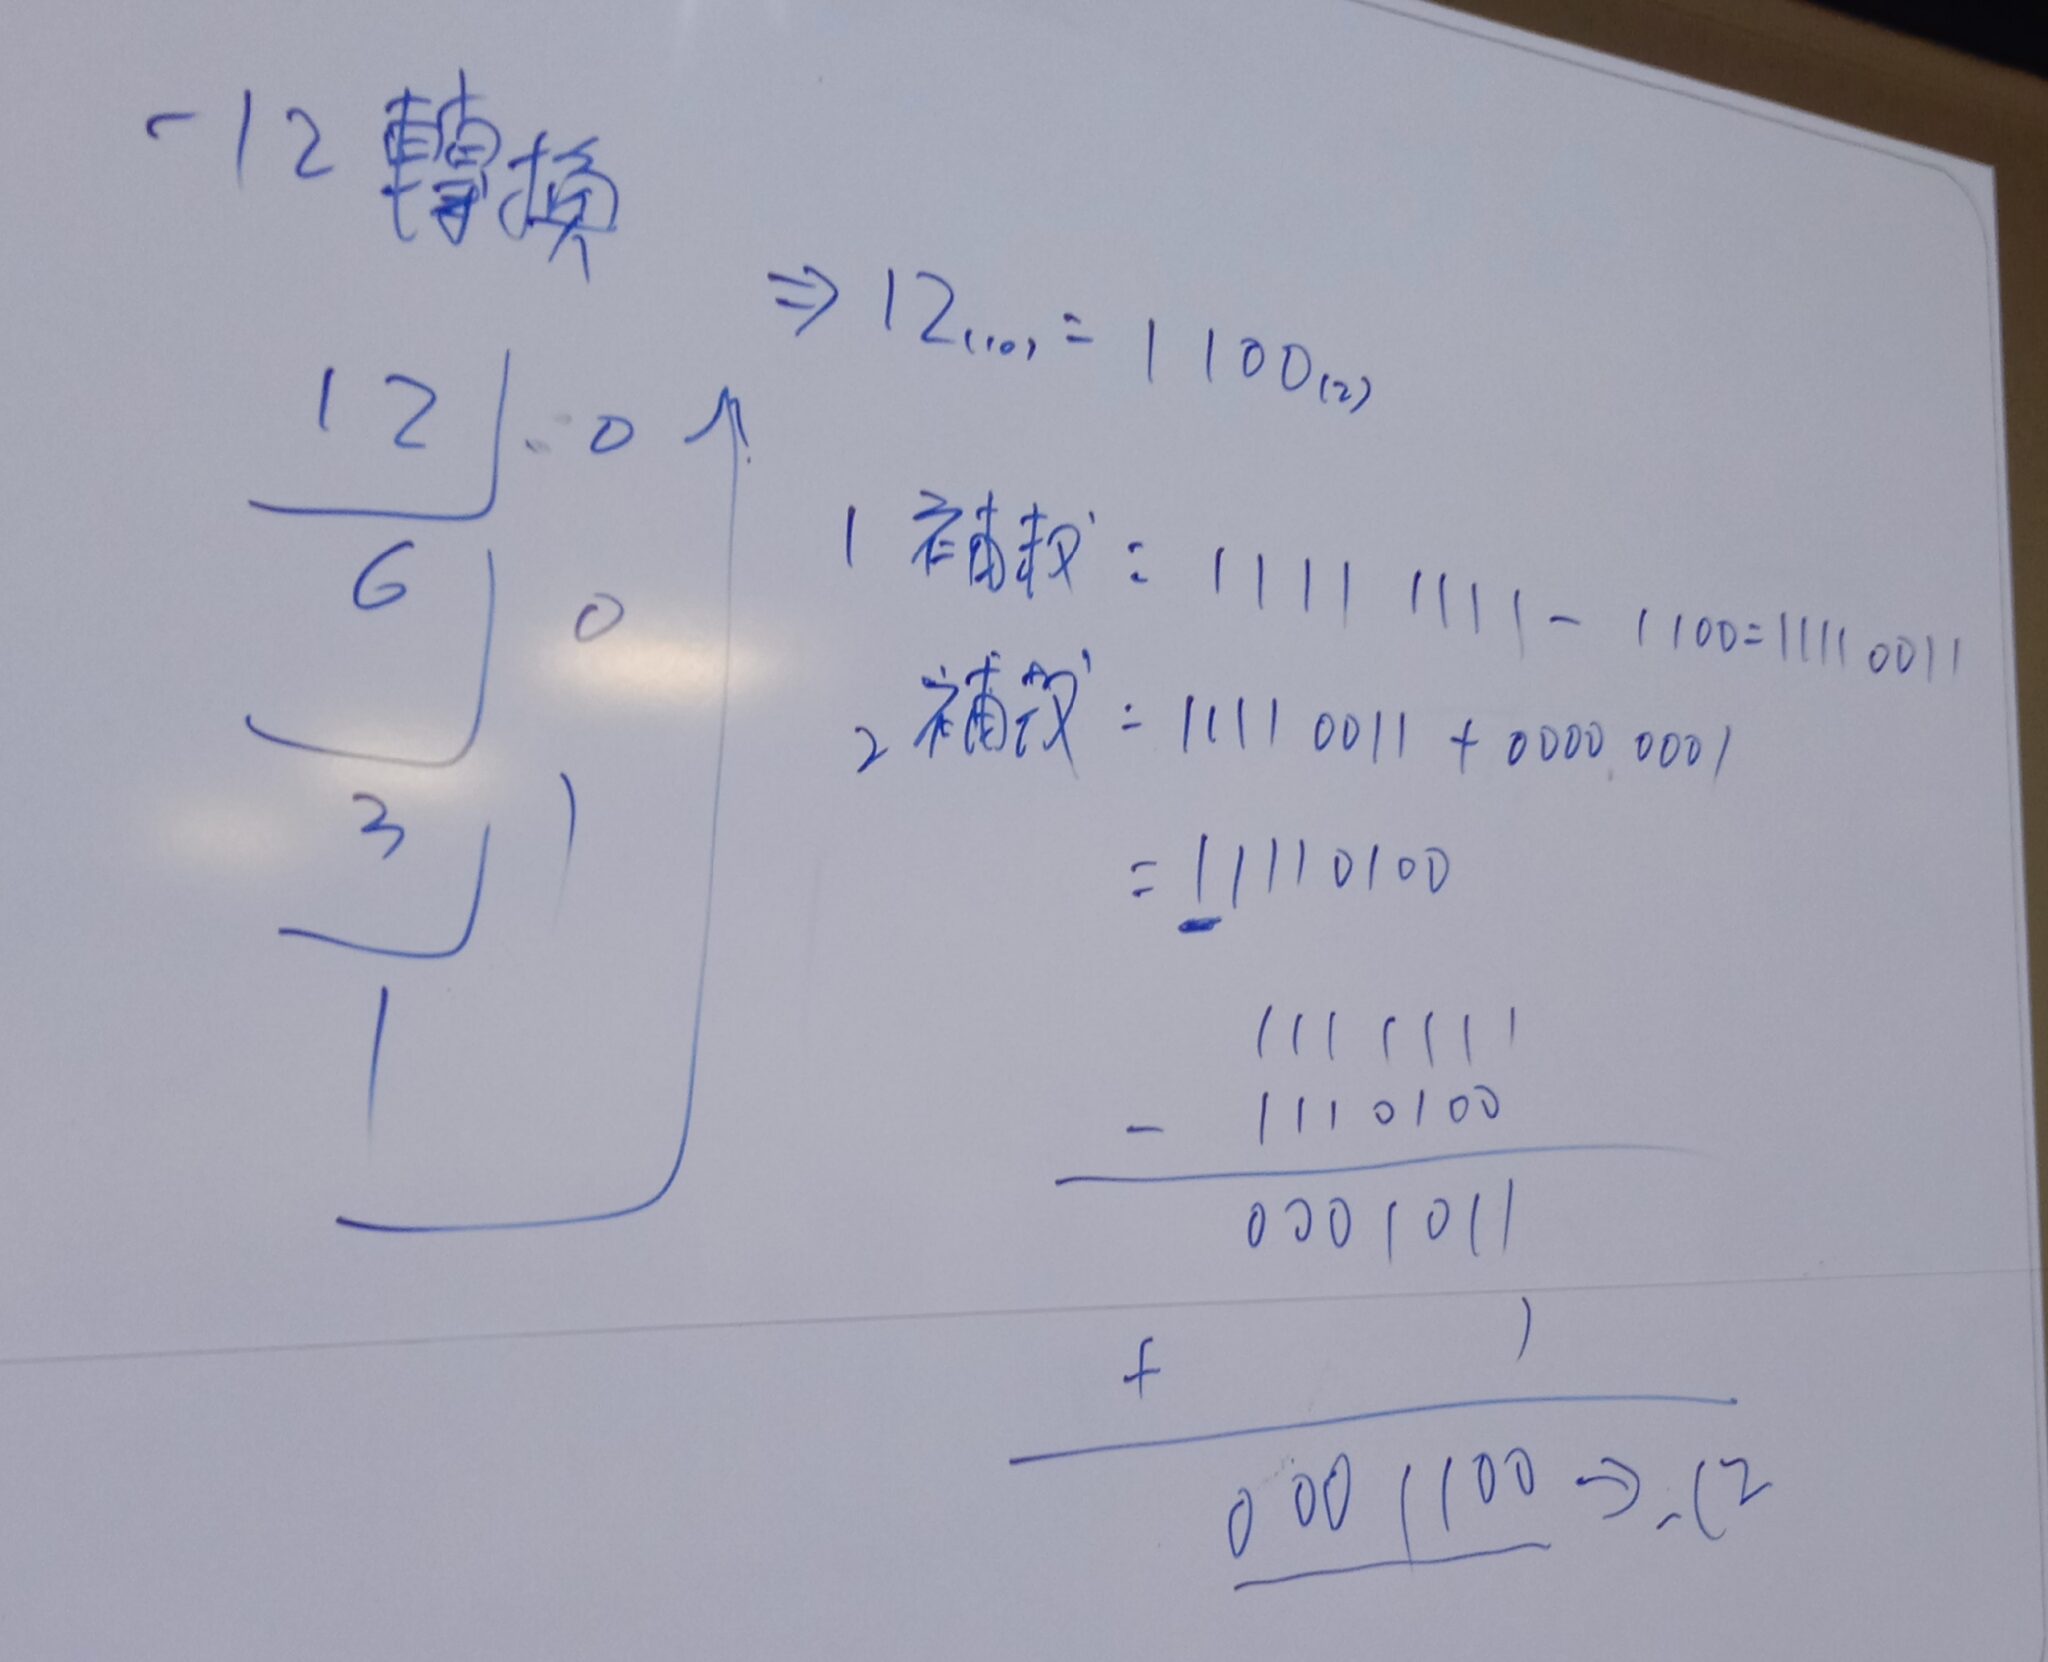 -12 轉換
12 0
6 0
3 1
1
⇒ 12(10) = 1100(2)
1 補数 = 1111 1111 - 1100 = 1111 0011
2 補数 = 1111 0011 + 0000 0001
= 11110100
1111111
- 1110100
0001011
+ 1
0001100 ⇒ -12